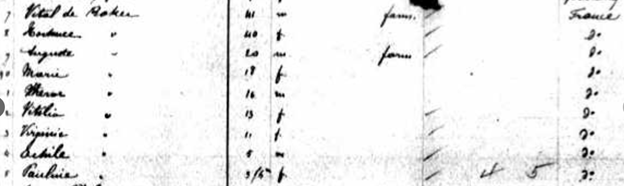 7 Vital de Baker 41 m farm. France
8 Hortense " 40 f do
9 Auguste " 20 m farm do
Marie " 18 f do
" 16 m do
Vitalie " 13 f do
3 Virginie " 11 f do
4 " 5 m do
5 Pauline " 3/12 f 4 5 do